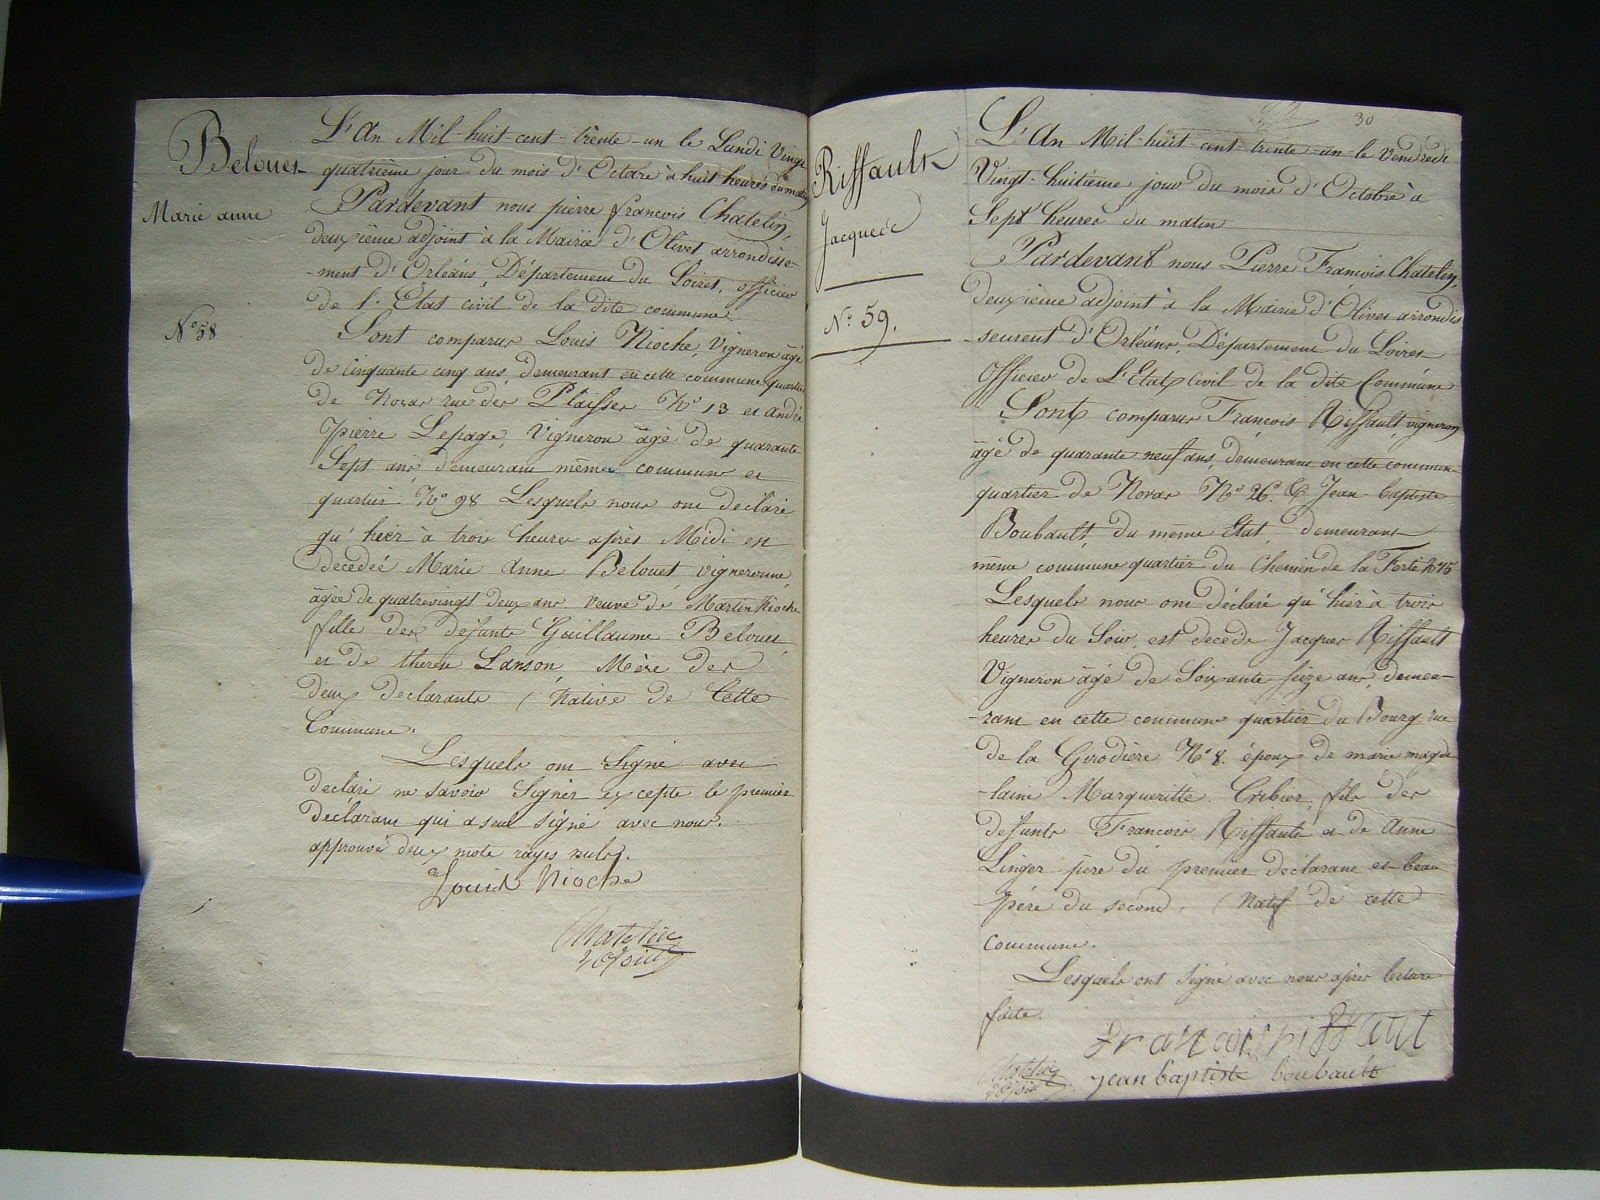 Belouet
Marie anne
N° 58
L'An Mil-huit-cent-trente-un le Lundi Vingt
quatrième jour du mois d'Octore à huit heures du matin
Pardevant nous pierre françois Chatelin,
deuxième adjoint à la Mairie d'Olivet arrondisse-
-ment d'Orléans, Département du Loiret, officier
de l'Etat civil de la dite commune.
Sont comparus Louis Nioche, Vigneron âgé
de Cinquante cinq ans, demeurant en cette commune quartier
de Noras rue des Plaisses N° 13 et André
pierre Lepage, Vigneron âgé de quarante
Sept ans demeurant même commune et
quartier N° 98 Lesquels nous ont déclaré
qu'hier à trois heures après Midi est
décédée Marie Anne Belouet vigneronne
âgée de quatrevingt deux ans veuve de Martin Nioche
fille des defunts Guillaume Belouet
et de therese Lanson, Mère des
deux declarants (Native de Cette
Commune.
Lesquels ont Signé avec
déclaré ne savoir Signer excepté le premier
Déclarant qui a seul signé avec nous.
approuvé deux mots rayés nuls.
Louis Nioche
Chatelin
adjoint
30
Riffault
Jacques
N° 59.
L'An Mil-huit-cent-trente-un le Vendredi
Vingt-huitième jour du mois d'Octobre à
Sept heures du matin
Pardevant nous Pierre François Chatelin,
deuxième adjoint à la Mairie d'Olivet arrondis
-sement d'Orléans, Département du Loiret
Officier de L'Etat civil de la dite Commune
Sont comparus François Riffault, vigneron
âgé de quarante neuf ans, demeurant en cette commune
quartier de Noras N° 26. & Jean-baptiste
Boubault, du même Etat, demeurant
même commune quartier du Chemin de la Ferté N° 15
Lesquels nous ont déclaré qu'hier à trois
heures du Soir, est décédé Jacques Riffault
Vigneron âgé de Soixante seize ans, demeu-
-rant en cette commune quartier du Bourg rue
de la Girodière N° 8. époux de marie magde
-laine Margueritte Cribier, fils des
defunts François Riffault et de Anne
Linger père du premier déclarant et beau
-père du second. (Natif de cette
Commune.
Lesquels ont Signé avec nous après lecture
faite.
François riffaut
Chatelin
adjoint
jean baptiste boubault